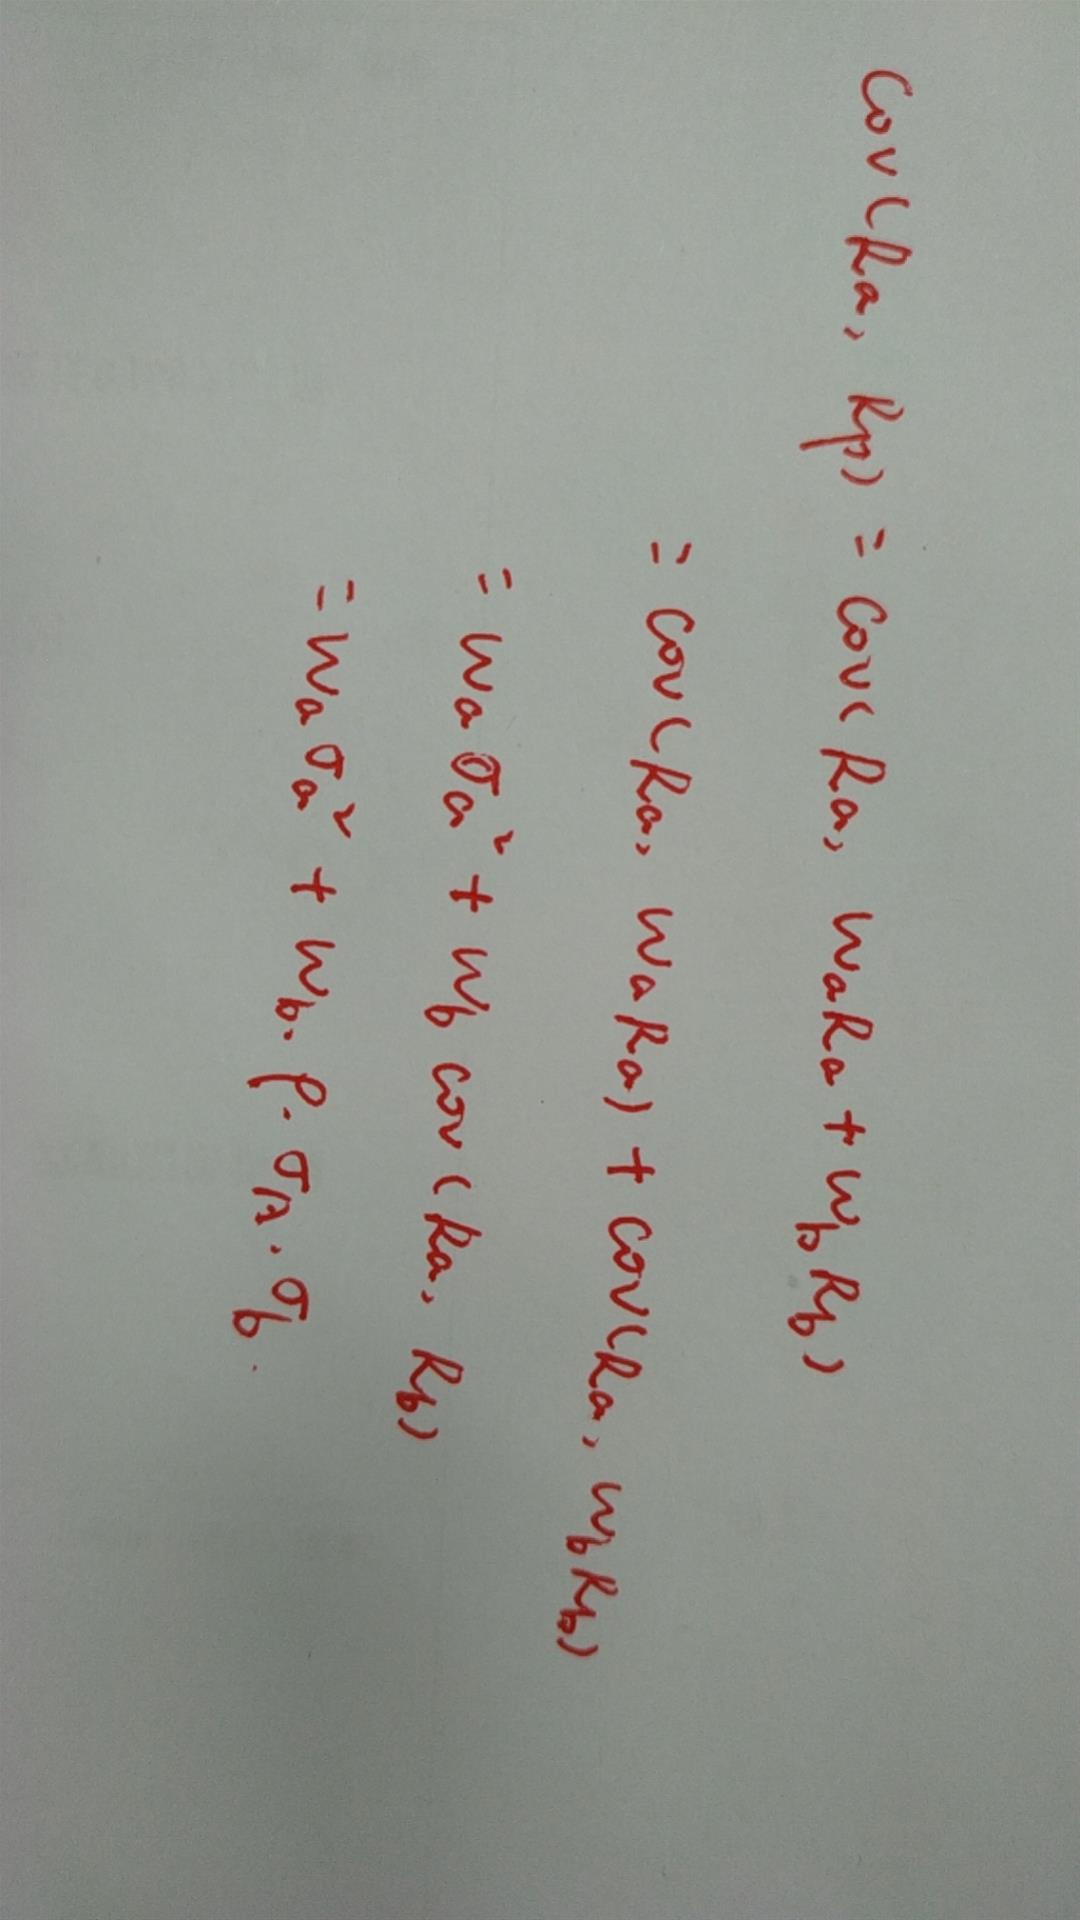 Cov(Ra, Rp) = Cov(Ra, WaRa + WbRb)
= Cov(Ra, WaRa) + Cov(Ra, WbRb)
= Waσa² + Wb Cov(Ra, Rb)
= Waσa² + Wb·ρ·σA·σb.